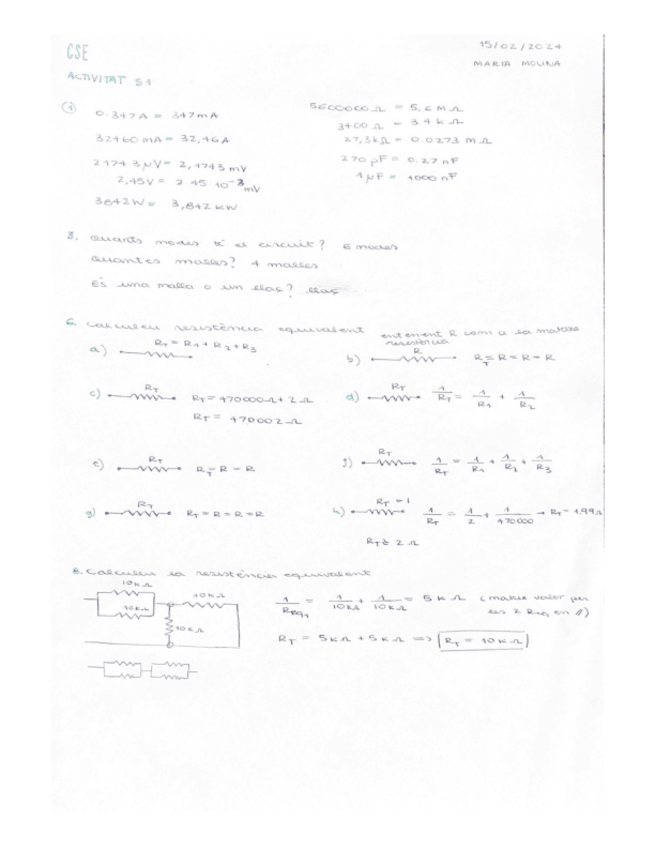 CSE
15/02/2024
MARIA MOLINA
ACTIVITAT S1
1
0.347A = 347mA
32460 mA = 32,46A
2174.3 μV = 2,1743 mV
2,45V = 2.45·10⁻³ mV
3842W = 3,842 kW
5600000 Ω = 5,6 MΩ
3400 Ω = 3.4 kΩ
27,3kΩ = 0.0273 MΩ
270 pF = 0.27 nF
1 μF = 1000 nF
3. Quants nodes té el circuit? 6 nodes
Quantes malles? 4 malles
És una malla o un llaç? llaç
6. Calculeu resistència equivalent entenent R com a la mateixa resistència
a) RT = R1 + R2 + R3
b) R RT = R = R = R
c) RT RT = 470000Ω + 2Ω
RT = 470002 Ω
d) RT 1/RT = 1/R1 + 1/R2
e) RT RT = R = R
f) RT 1/RT = 1/R1 + 1/R2 + 1/R3
g) RT RT = R = R = R
h) RT = 1/RT = 1/2 + 1/470000 → RT = 1.99Ω
RT ≈ 2 Ω
8. Calculeu la resistència equivalent
10kΩ
10kΩ
10kΩ
10kΩ
1/Req1 = 1/10kΩ + 1/10kΩ = 5 kΩ (mateix valor per
les 2 Req en //)
RT = 5kΩ + 5kΩ => RT = 10kΩ